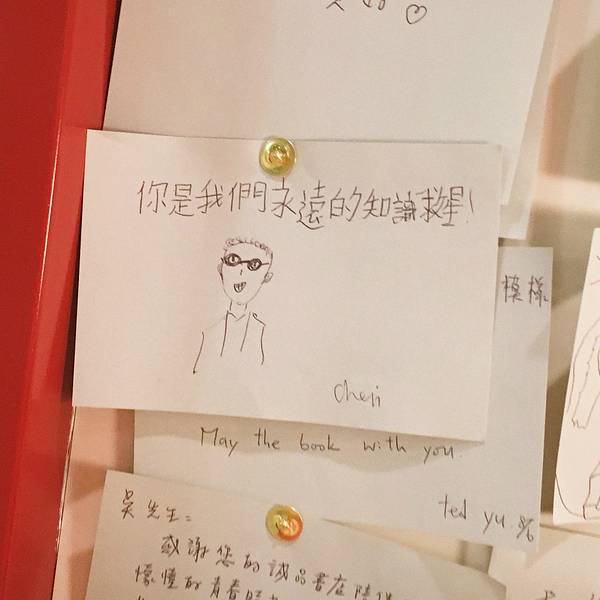 你是我們永遠的知識救星!
Cheri
模樣
May the book with you.
ted yu.
吳先生:
感謝您的誠品書店陪伴
懵懂的青春時